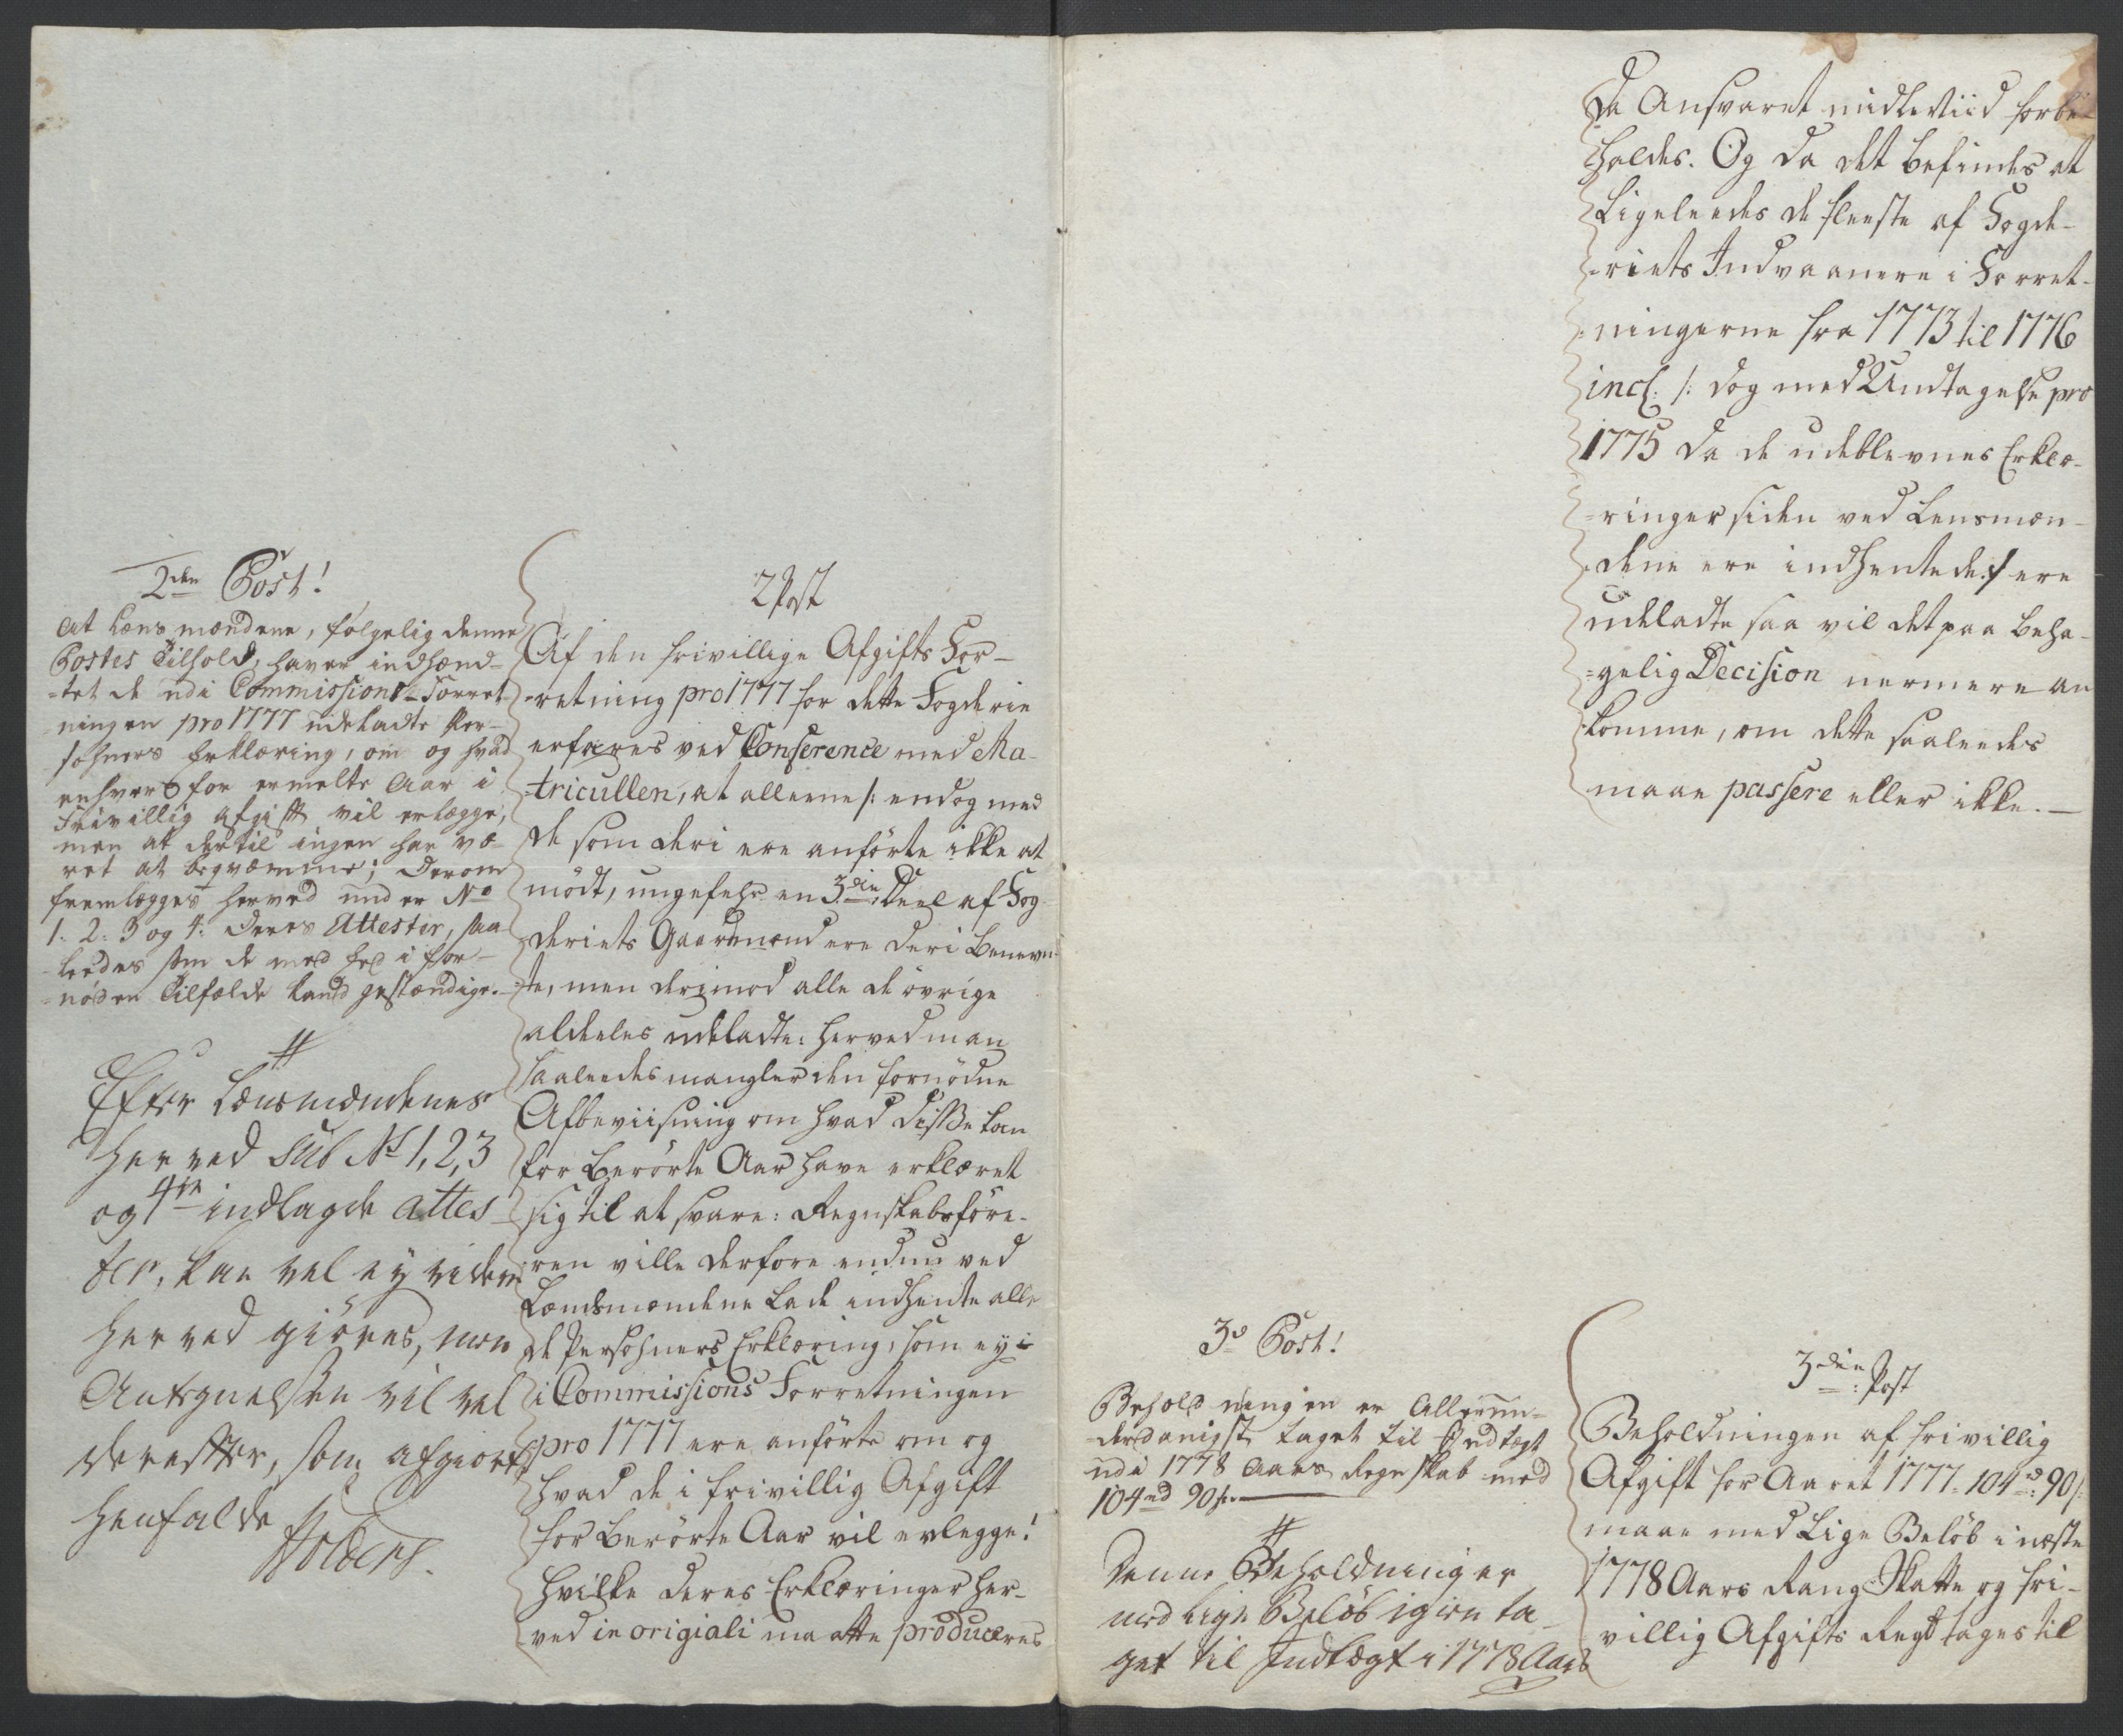 2den Post!
At Lænsmændene, følgelig denne
Postes Tilhold, haver indhænd-
-tet de udi Commissions-Forret-
ningen pro 1777 udeladte Per-
sohners Erklæring, om og hvad
enhver for ermelte Aar i
Frivillig Afgift vil erlægge,
men at dertil ingen har væ-
ret at beqvæmme; Derom
fremlægges herved under No
1. 2. 3 og 4. Deres Attester, saa-
leedes som de med Eed i for-
nøden Tilfælde kand gestændige.
#
Efter Lænsmændenes
herved sub No 1, 2, 3
og 4de indlagde attes-
ter, kan vel ey videre
herved giöres, men
Antegnelsen vil vel
derefter, som afgiort
henfalde
Holbers.
2 Post
Af den frivillige Afgifts For-
-retning pro 1777 for dette Fogderie
erfares ved Conference med Ma-
tricullen, at alleene /: endog med
de som deri ere anförte ikke at
mödt, ungefehr en 3die Deel af Fog-
-deriets Gaardmænd ere deri Benevn-
-te, men derimod alle de övrige
aldeeles udeladte: herved man
saaleedes mangler den fornödne
Afbeviisning om hvad disse kan
for Berörte Aar have erklæret
sig til at svare: Regnskabsföre-
ren ville derfore endnu ved
Lændsmændene lade indhente alle
de Persohners Erklæring, som ey i
i Commissions Forretningen
pro 1777 ere anförte om og
hvad de i frivillig Afgift
for Berörte Aar vil erlegge!
Hvilke deres Erklæringer her-
-ved in origiali maatte produceres
Da Ansvaret midlertiid forbe-
holdes. Og da det befindes at
Ligeleedes de fleeste af Fogde-
-riets Indvaanere i Forret-
-ningerne fra 1773 til 1776
incl. /: dog med Undtagelse pro
1775 da de udeblevnes Erklæ-
-ringer siden ved Lensmæn-
-dene ere indhentede :/ ere
udeladte saa vil det paa beha-
-gelig Decision nermere an-
komme, om dette saaleedes
maae passere eller ikke. —
3de Post!
Beholdningen er Allerun-
-derdanigst taget til Indtægt
udi 1778 Aars Regnskab med
104rd 90s.
#
Denne Beholdning er
med lige Beløb igien ta-
get til Indtægt i 1778 Aars
3die Post
Beholdningen af frivillig
Afgift for Aaret 1777. 104rd: 90s
maae med Lige Beløb i næste
1778 Aars Rang Skatte og fri-
villig Afgifts Regsk tages til